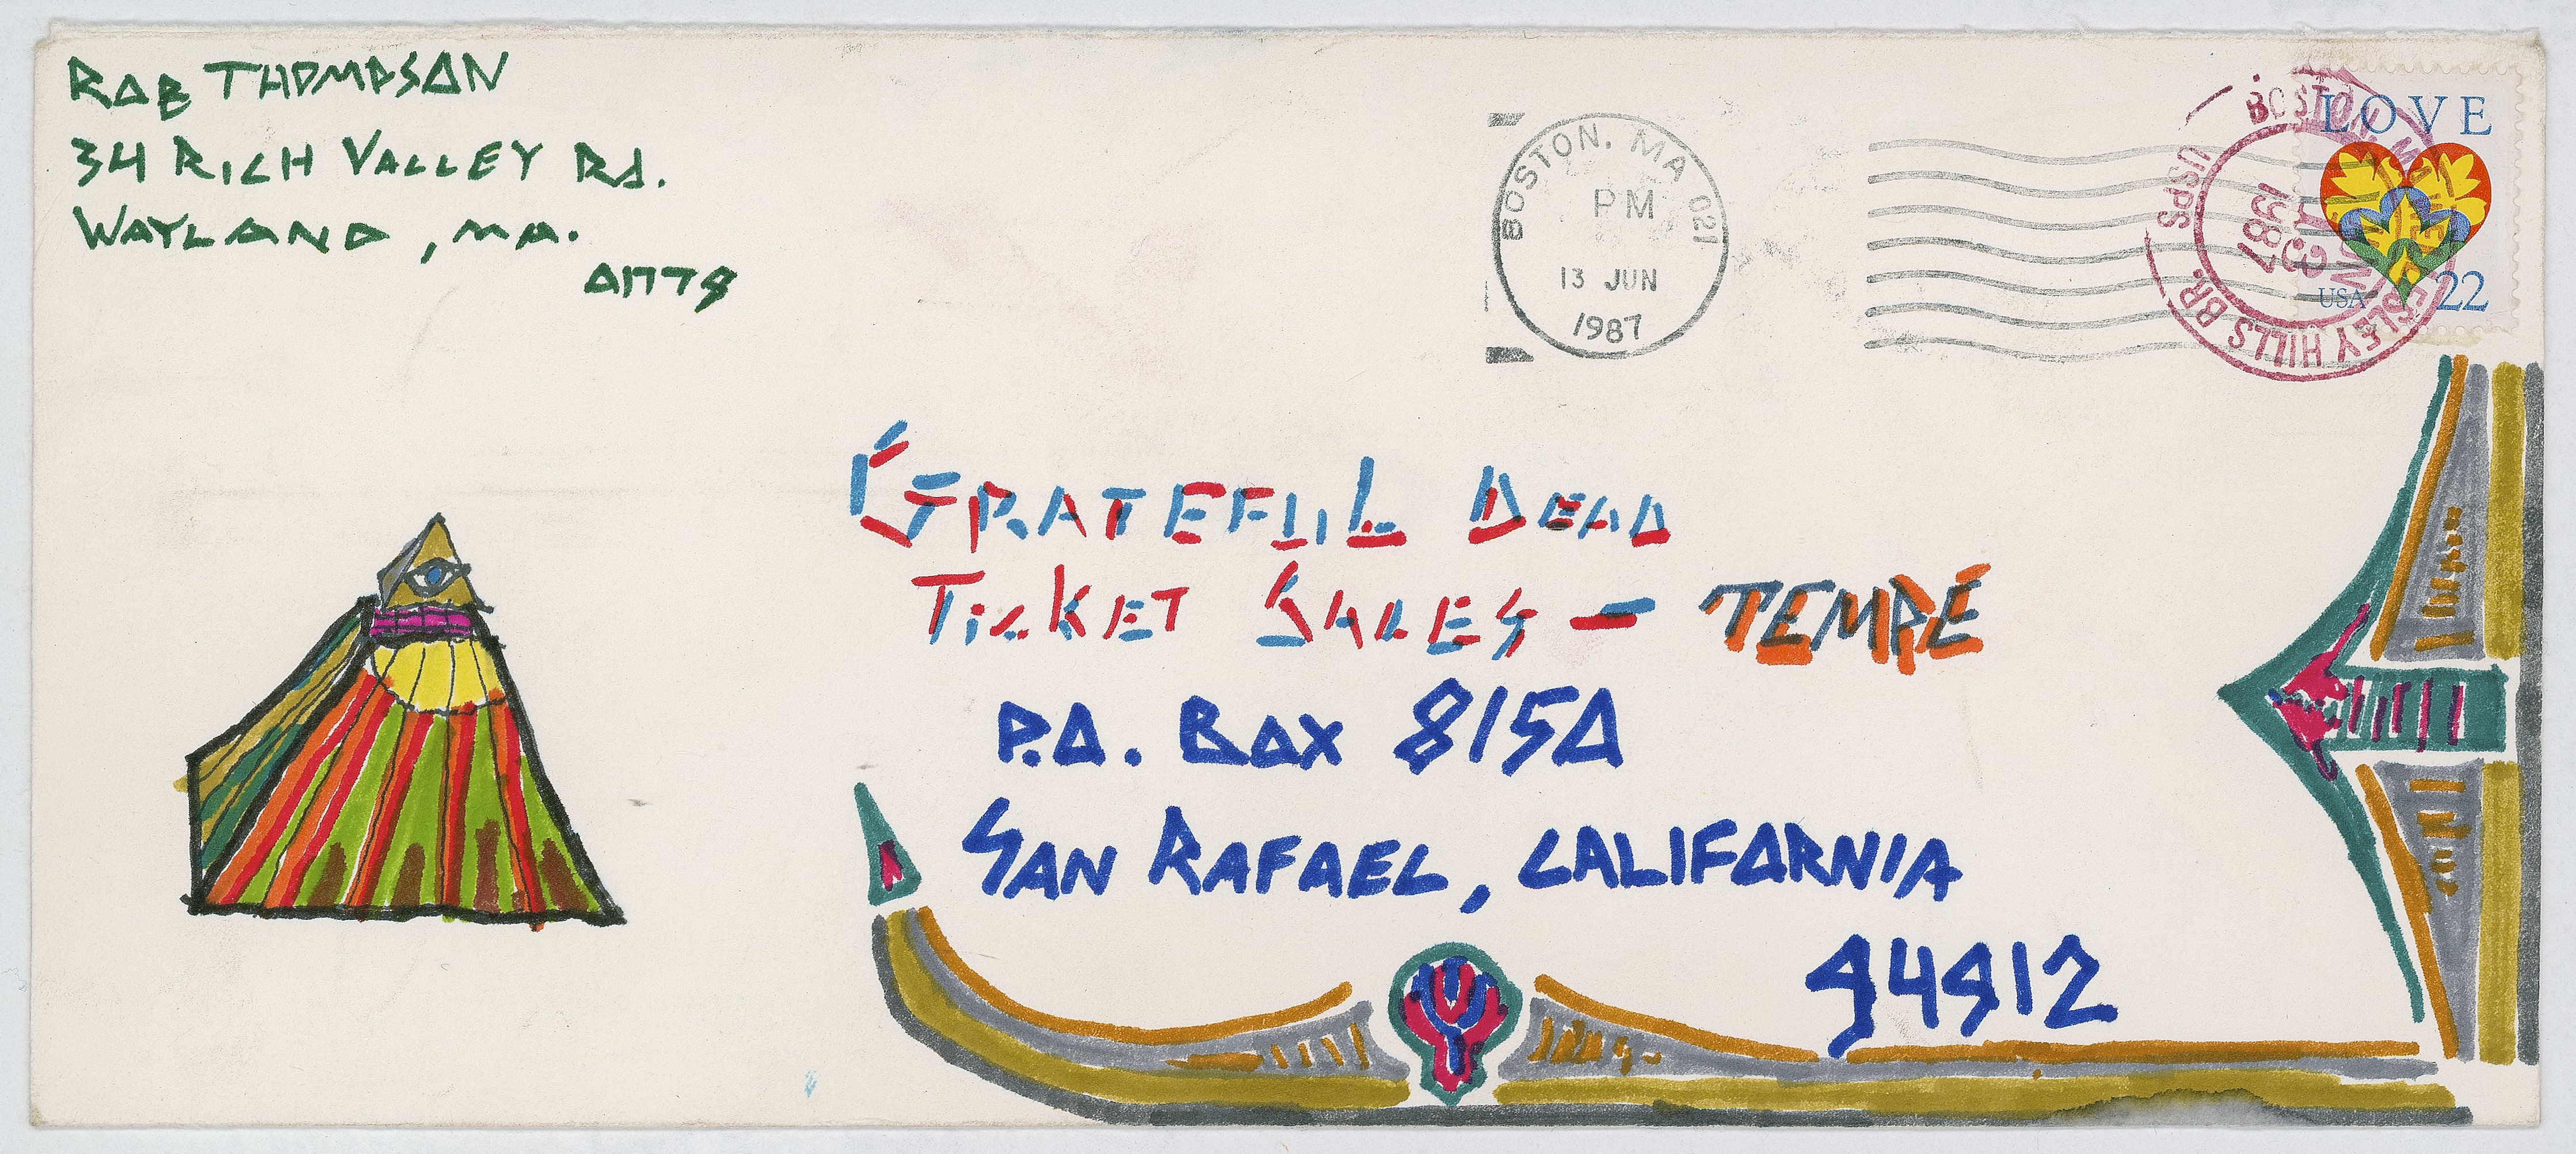 ROB THOMPSON
34 RICH VALLEY RD.
WAYLAND, MA.
01778
BOSTON, MA 021
PM
13 JUN
1987
BOSTON
USPS
1987
HILLS BR.
LOVE
USA 22
GRATEFUL DEAD
TICKET SALES - TEMPE
P.O. BOX 8150
SAN RAFAEL, CALIFORNIA
94912